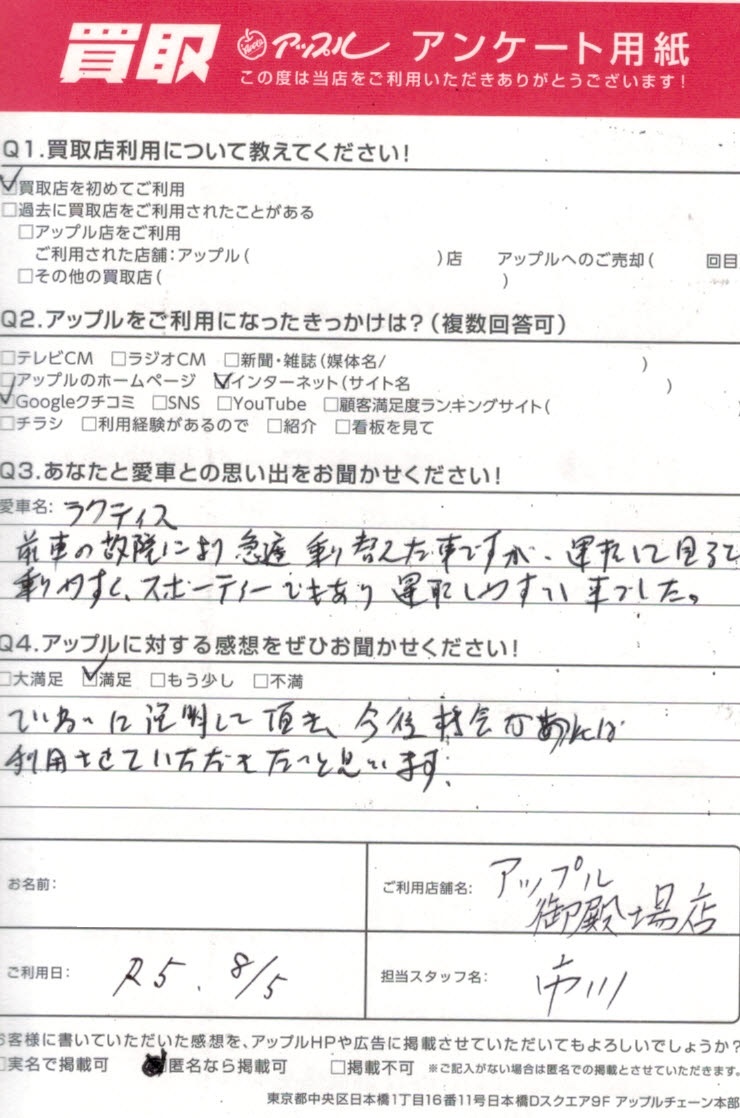 買取 アップル アンケート用紙
この度は当店をご利用いただきありがとうございます!
Q1.買取店利用について教えてください!
☑買取店を初めてご利用
□過去に買取店をご利用されたことがある
□アップル店をご利用
ご利用された店舗:アップル( )店 アップルへのご売却( 回目
□その他の買取店( )
Q2.アップルをご利用になったきっかけは?(複数回答可)
□テレビCM □ラジオCM □新聞・雑誌(媒体名/ )
□アップルのホームページ ☑インターネット(サイト名 )
☑Googleクチコミ □SNS □YouTube □顧客満足度ランキングサイト( )
□チラシ □利用経験があるので □紹介 □看板を見て
Q3.あなたと愛車との思い出をお聞かせください!
愛車名: ラクティス
前車の故障により急遽乗り替えた車ですが、運転して見ると
乗りやすく、スポーティーでもあり運転しやすい車でした。
Q4.アップルに対する感想をぜひお聞かせください!
□大満足 ☑満足 □もう少し □不満
ていねいに説明して頂き、今後機会があれば
利用させていただきたいと思います。
お名前:
ご利用店舗名: アップル
御殿場店
ご利用日: R5. 8/5
担当スタッフ名: 市川
お客様に書いていただいた感想を、アップルHPや広告に掲載させていただいてもよろしいでしょうか?
□実名で掲載可 ☑匿名なら掲載可 □掲載不可 ※ご記入がない場合は匿名での掲載とさせていただきます。
東京都中央区日本橋1丁目16番11号日本橋Dスクエア9F アップルチェーン本部